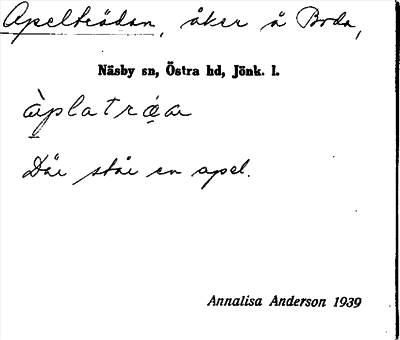 Apelträdan, åker å Boda,
Näsby sn, Östra hd, Jönk. l.
Där står en apel.
Annalisa Anderson 1939